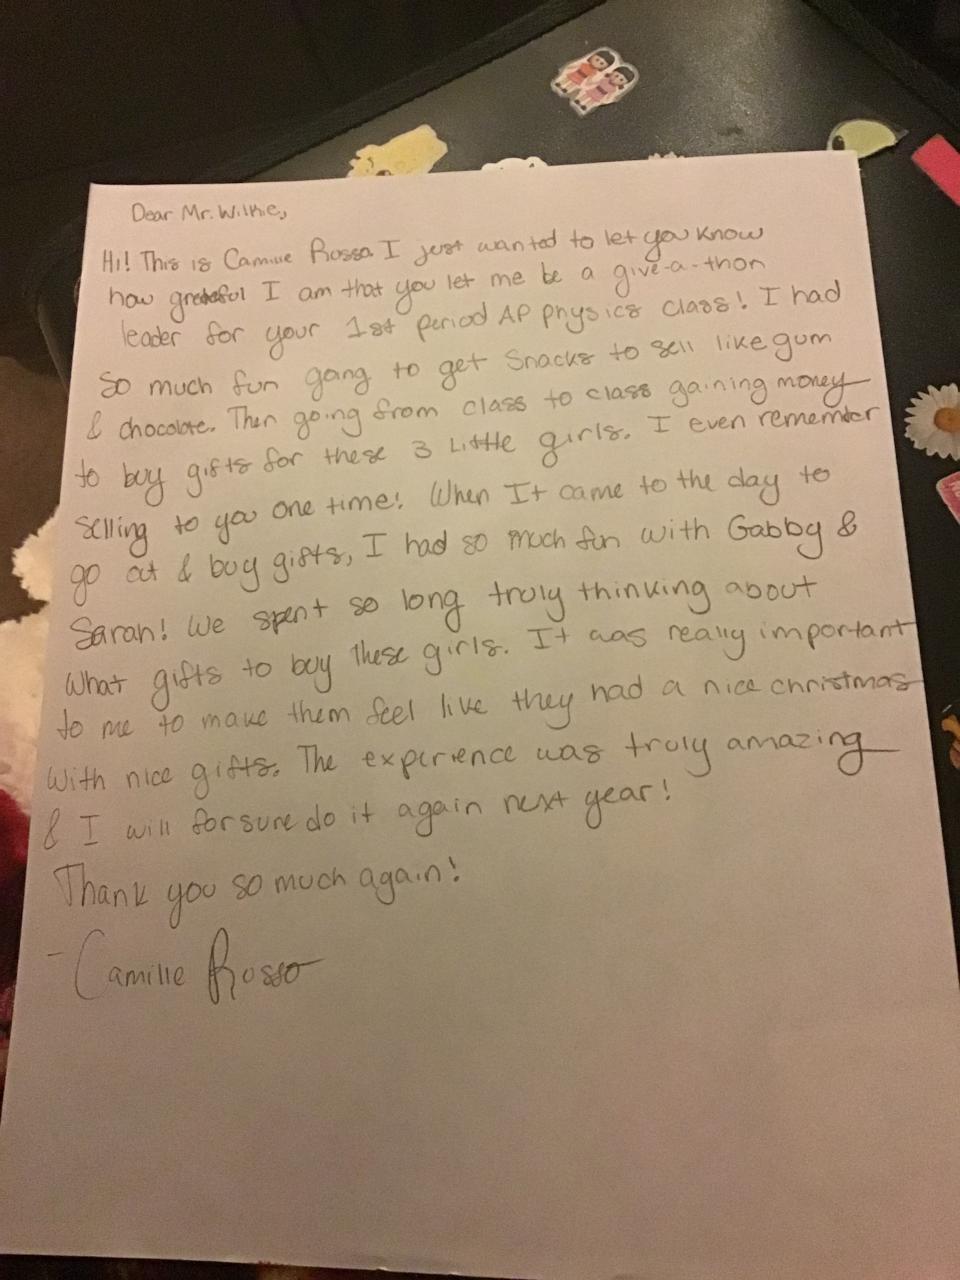 Dear Mr. Wilkie,
Hi! This is Camille Rosso. I just wanted to let you know
how grateful I am that you let me be a give-a-thon
leader for your 1st period AP physics class! I had
so much fun going to get snacks to sell like gum
& chocolate. Then going from class to class gaining money
to buy gifts for these 3 little girls. I even remember
selling to you one time! When It came to the day to
go out & buy gifts, I had so much fun with Gabby &
Sarah! We spent so long truly thinking about
what gifts to buy these girls. It was really important
to me to make them feel like they had a nice christmas
with nice gifts. The experience was truly amazing
& I will for sure do it again next year!
Thank you so much again!
- Camille Rosso